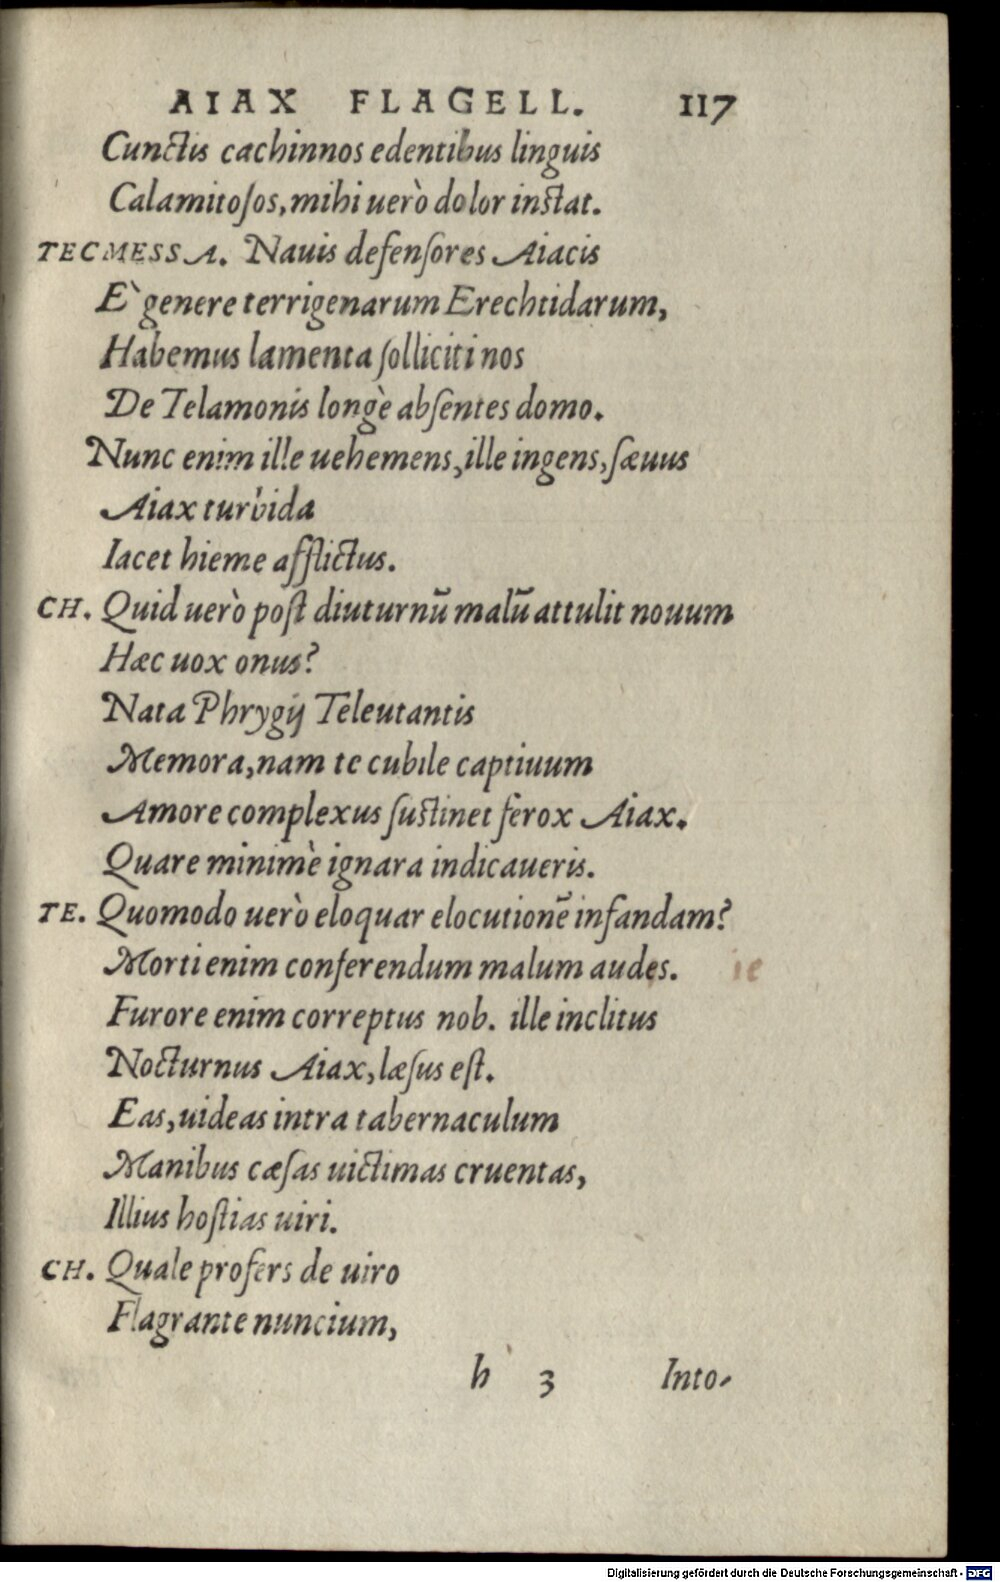 AIAX FLAGELL. 117
Cunctis cachinnos edentibus linguis
Calamitoſos, mihi uerò dolor inſtat.
TECMESSA. Nauis defenſores Aiacis
E` genere terrigenarum Erechtidarum,
Habemus lamenta ſolliciti nos
De Telamonis longè abſentes domo.
Nunc enim ille uehemens, ille ingens, ſæuus
Aiax turbida
Iacet hieme afflictus.
CH. Quid uerò poſt diuturnū malū attulit nouum
Hæc uox onus?
Nata Phrygij Teleutantis
Memora, nam te cubile captiuum
Amore complexus ſuſtinet ferox Aiax.
Quare minimè ignara indicaueris.
TE. Quomodo uerò eloquar elocutionē infandam?
Morti enim conferendum malum audes.
ie
Furore enim correptus nob. ille inclitus
Nocturnus Aiax, læſus eſt.
Eas, uideas intra tabernaculum
Manibus cæſas uictimas cruentas,
Illius hoſtias uiri.
CH. Quale profers de uiro
Flagrante nuncium,
h 3 Into-
Digitalisierung gefördert durch die Deutsche Forschungsgemeinschaft - DFG